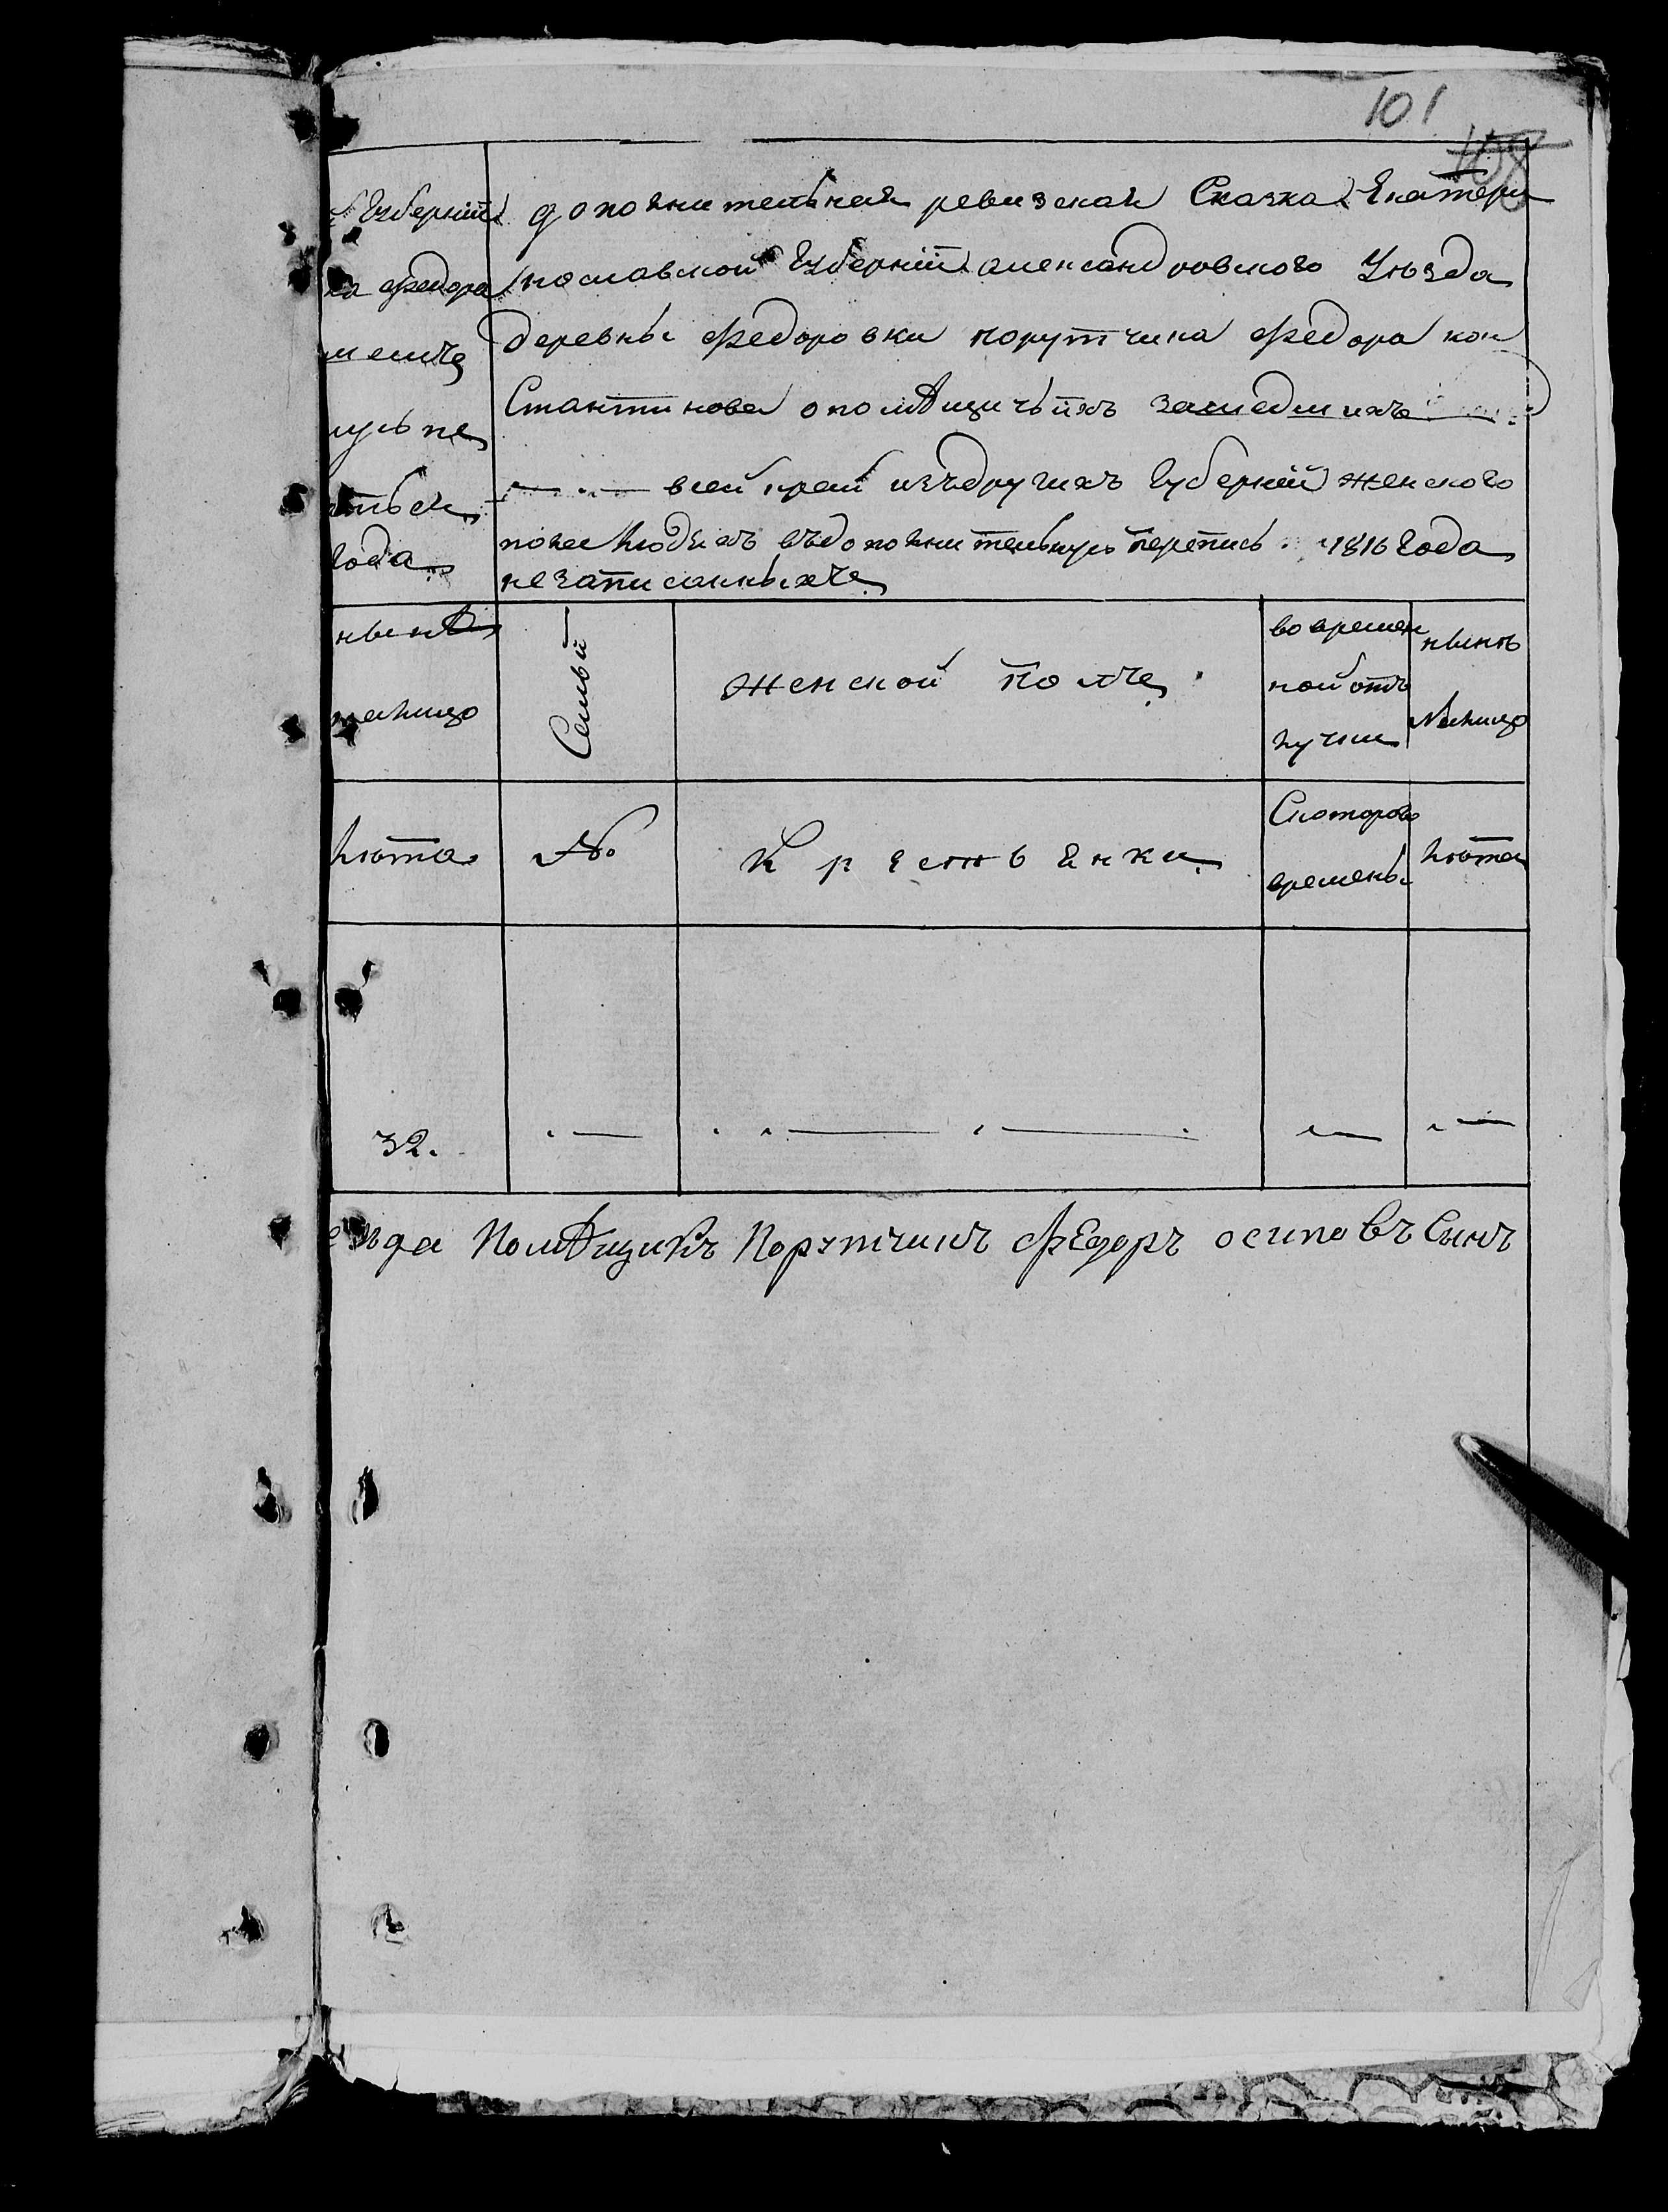 101
108
Губерніи дополнительная ревизская Сказка Екатери
ка Федора нославской Губерніи александровского Уѣзда
деревны Федоровки порутчика Федора кон
Стантинова опомѣщичьихъ зашедшихъ
всей край изъдругихъ Губерній женского
пола Людяхъ въдополнительную перепись 1816 Года
Года
незаписанныхъ
нынѣ
налицо
Семьи
женской полъ
вовремен
ной отъ
лучки
нынѣ
Налицо
Лѣта
№
Крестьенки
Скоторого
времены
Лѣта
32.
езда Помѣщикъ Порутчикъ Федоръ осиповъ Сынъ